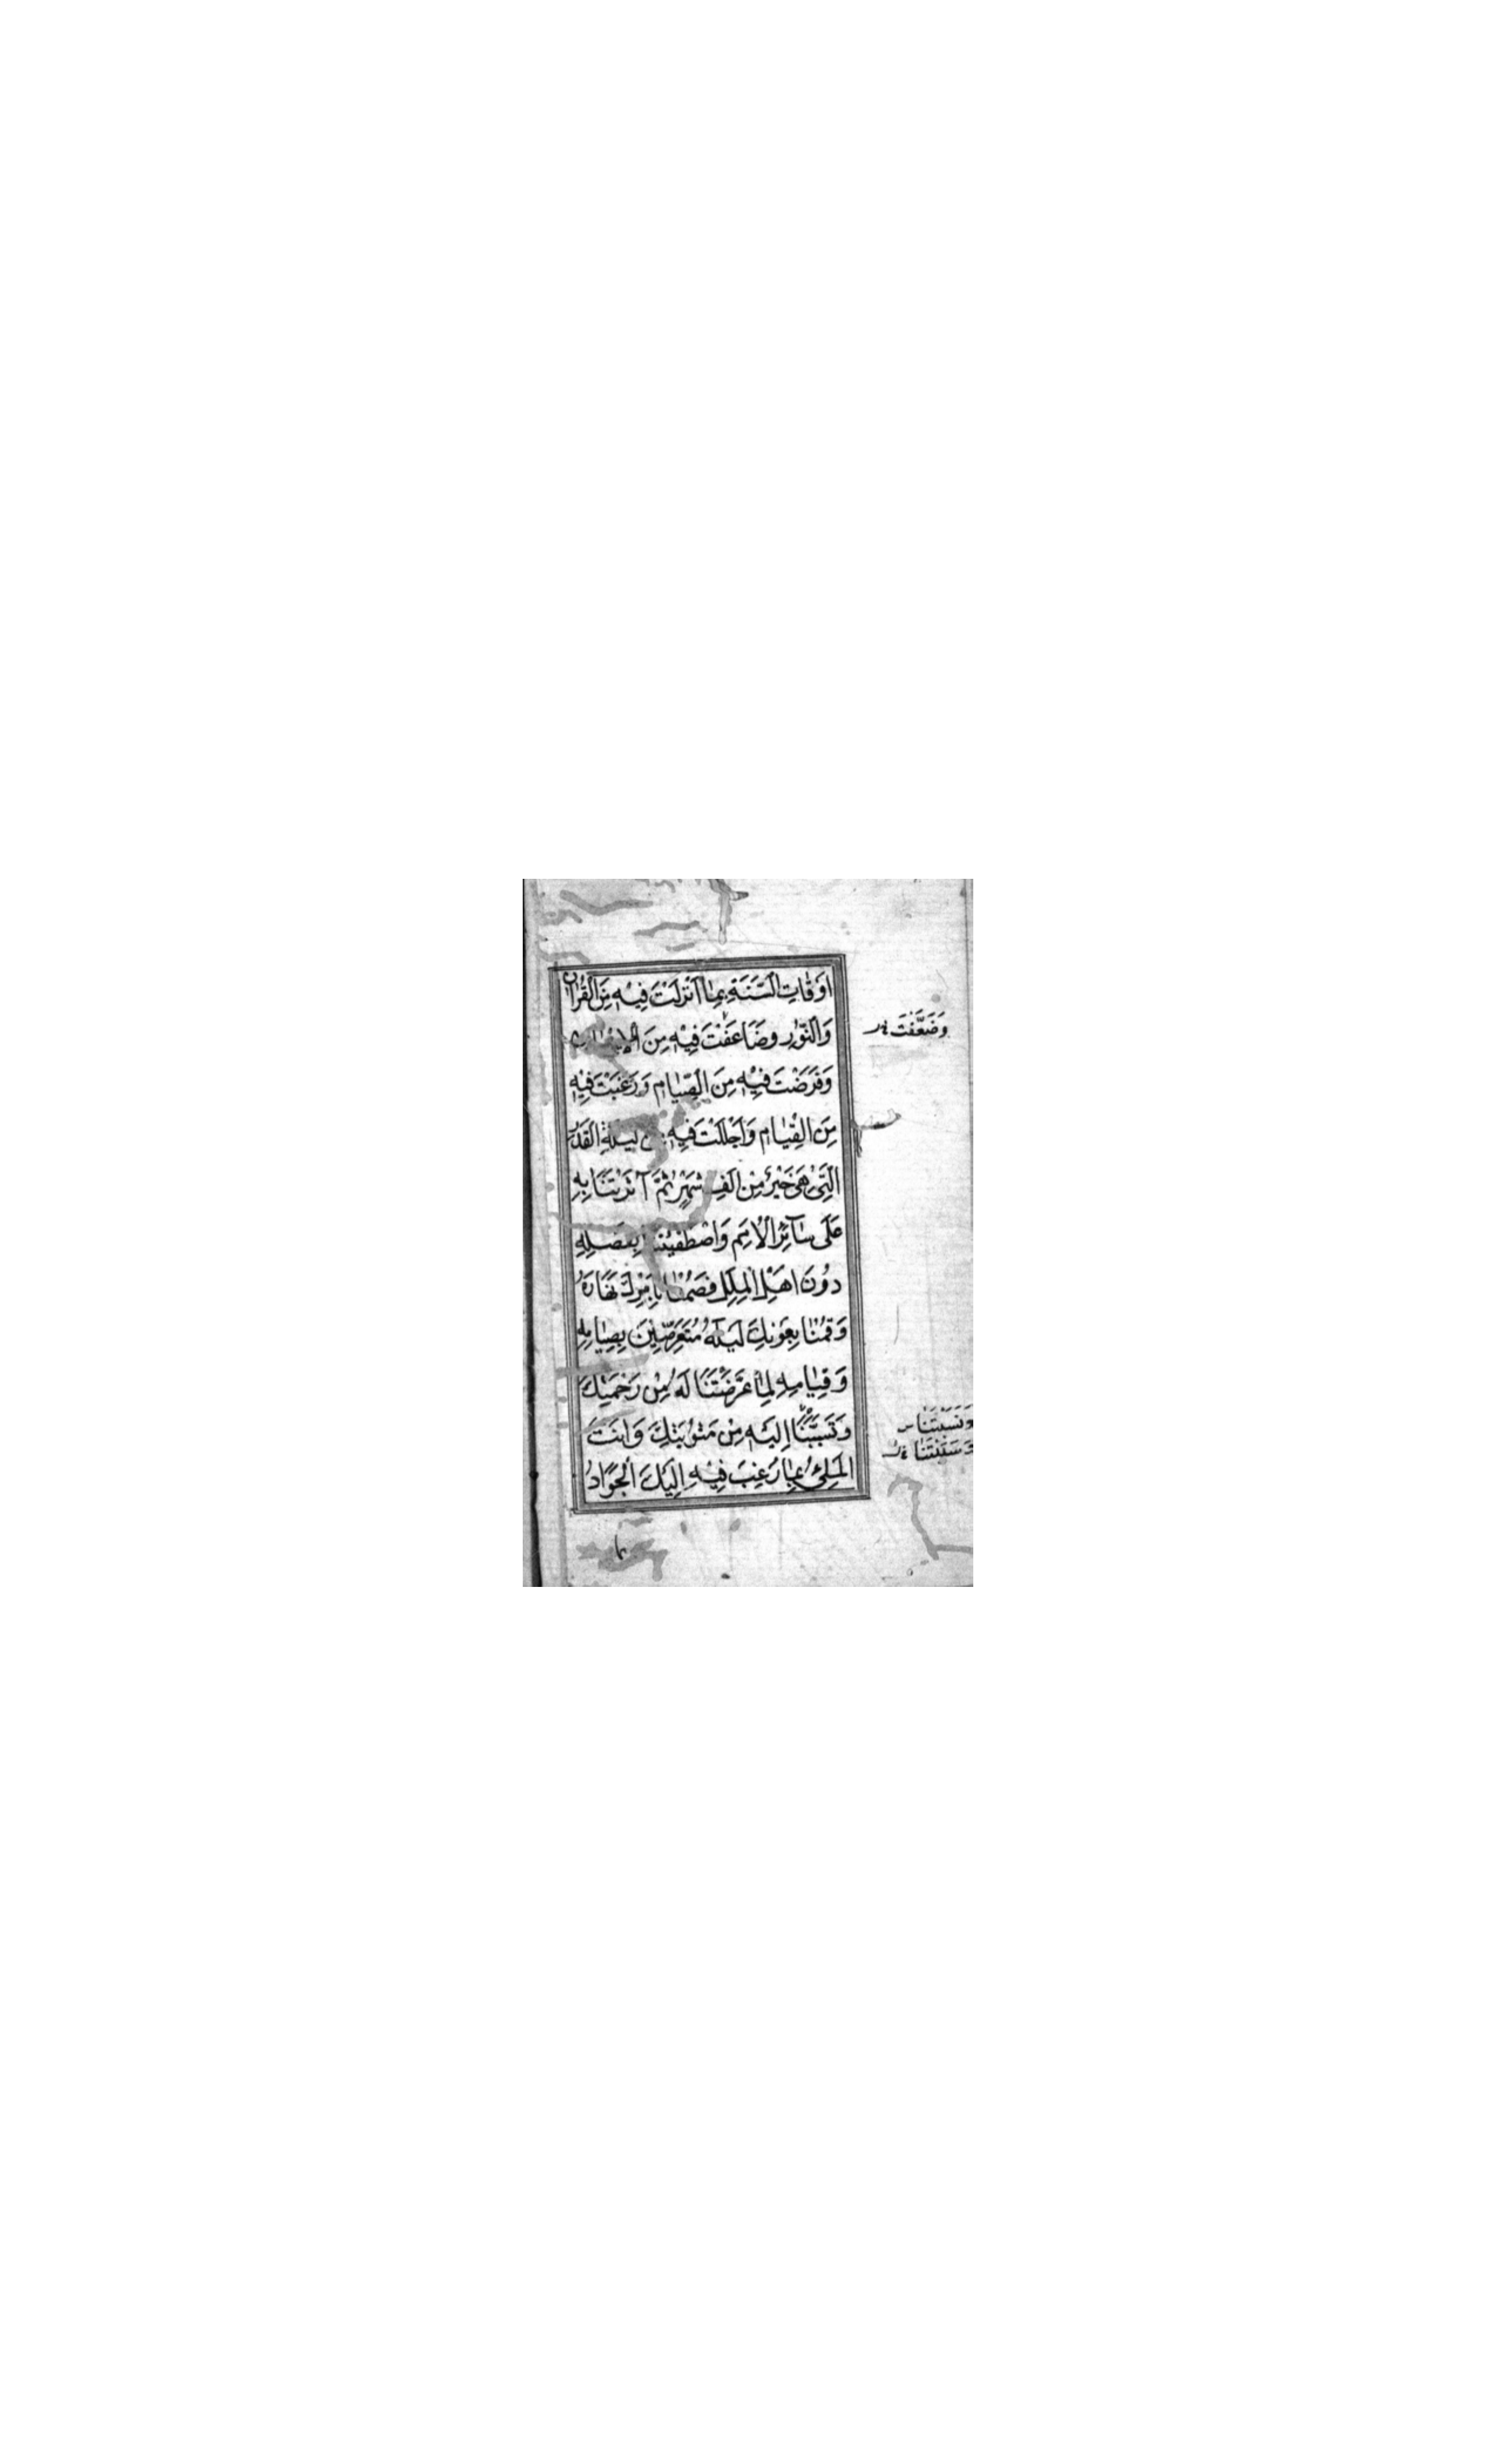 اَوْقاتِ السَّنَةِ بِما اَنْزَلْتَ فيهِ مِنَ الْقُرْانِ
وَالنُّورِ وَضَاعَفْتَ فيهِ مِنَ الْاِيمانِ
وَفَرَضْتَ فيهِ مِنَ الصِّيامِ وَرَغَّبْتَ فيهِ
مِنَ الْقِيامِ وَاَجْلَلْتَ فيهِ مِنْ لَيْلَةِ الْقَدْرِ
الَّتي هِيَ خَيْرٌ مِنْ اَلْفِ شَهْرٍ ثُمَّ اٰثَرْتَنَا بِهِ
عَلى سٰآئِرِ الْاُمَمِ وَاصْطَفَيْتَنا بِفَضْلِهِ
دُونَ اَهْلِ الْمِلَلِ فَصُمْنا بِاَمْرِكَ نَهَارَهُ
وَقُمْنا بِعَوْنِكَ لَيْلَهُ مُتَعَرِّضِينَ بِصِيامِهِ
وَقِيامِهِ لِما عَرَّضْتَنَا لَهُ مِنْ رَحْمَتِكَ
وَتَسَبَّبْنَا اِلَيْهِ مِنْ مَثُوبَتِكَ وَاَنْتَ
الْمَلِيُّ بِما رُغِبَ فيهِ اِلَيْكَ الْجَوَادُ
وَضَعَّفْتَ